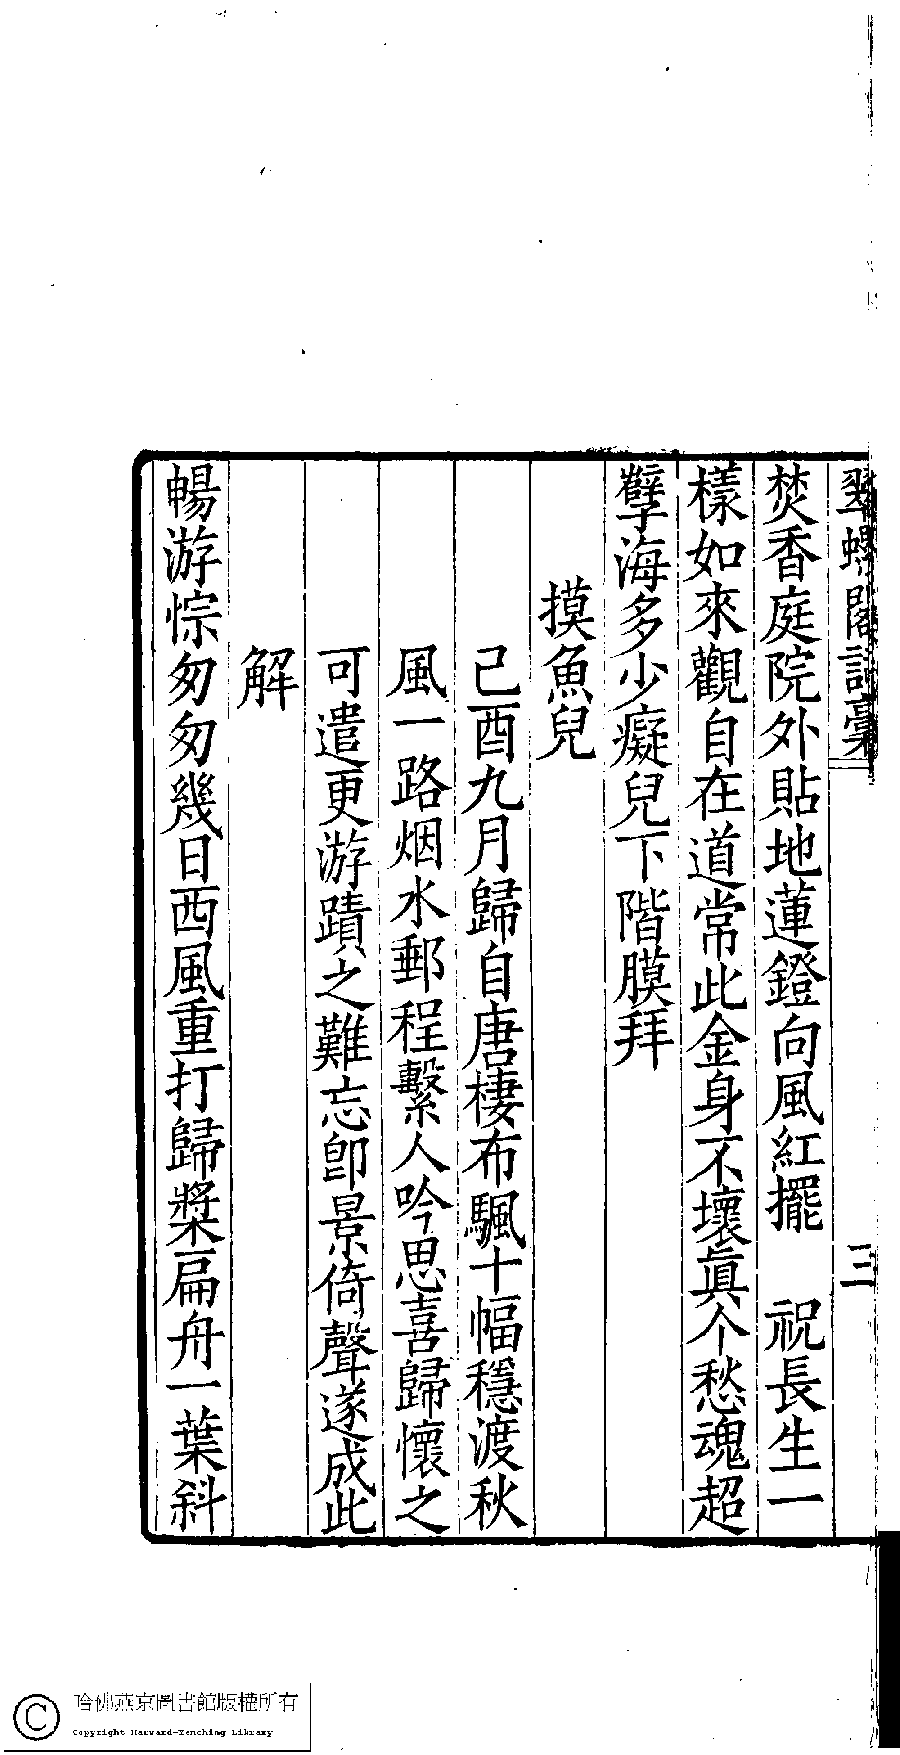 翠螺閣詞藁
三
焚香庭院外貼地蓮鐙向風紅擺　祝長生一
樣如來觀自在道常此金身不壞眞个愁魂超
孽海多少癡兒下階膜拜
摸魚兒
己酉九月歸自唐棲布颿十幅穩渡秋
風一路烟水郵程繫人吟思喜歸懷之
可遣更游蹟之難忘卽景倚聲遂成此
解
暢游悰匆匆幾日西風重打歸槳扁舟一葉斜
哈佛燕京圖書館版權所有
Copyright Harvard-Yenching Library